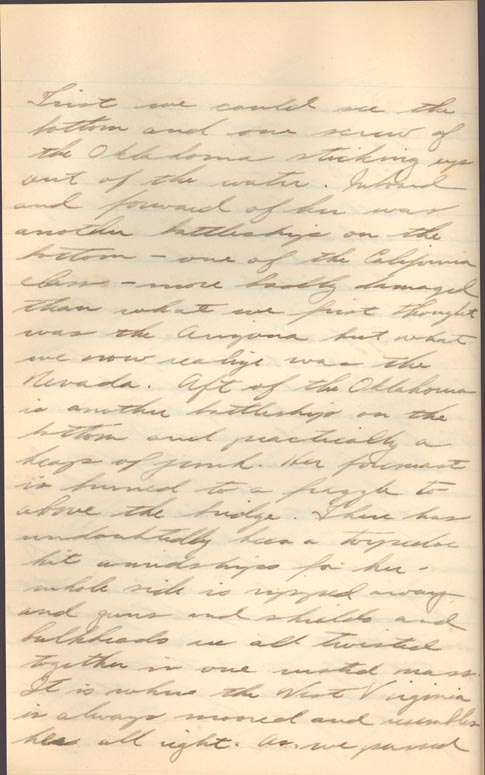 First we could see the
bottom and one screw of
the Oklahoma sticking up
out of the water. Inboard
and forward of her was
another battleship on the
bottom - one of the California
class - more badly damaged
than what we first thought
was the Arizona but what
we now realize was the
Nevada. Aft of the Oklahoma
is another battleship on the
bottom and practically a
heap of junk. Her foremast
is burned to a frizzle to
above the bridge. There has
undoubtedly been a torpedoe
hit amidships for her
whole side is ripped away
and guns and shields and
bulkheads are all twisted
together in one mass.
It is where the West Virginia
is always moored and resembles
her all right. As we passed